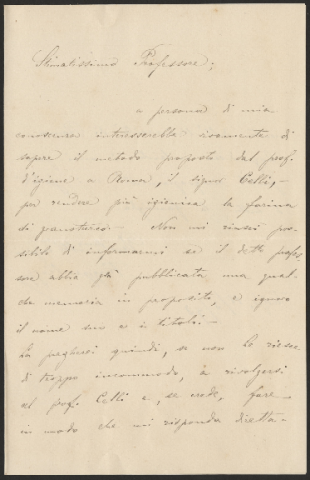 Stimatissimo Professore;
a persona di mia
conoscenza interesserebbe vivamente di
sapere il metodo proposto dal prof.
d'igiene a Roma, il signor Celli, –
per rendere più igienica la farina
di granoturco. – Non mi riuscì pos-
sibile di informarmi se il detto profes-
sore abbia già pubblicata una qual-
che memoria in proposito, e ignoro
il nome suo ed i titoli. –
La pregherei quindi, se non le riesce
di troppo incommodo, a rivolgersi
al prof. Celli e, se crede, fare
in modo che mi risponda diretta-